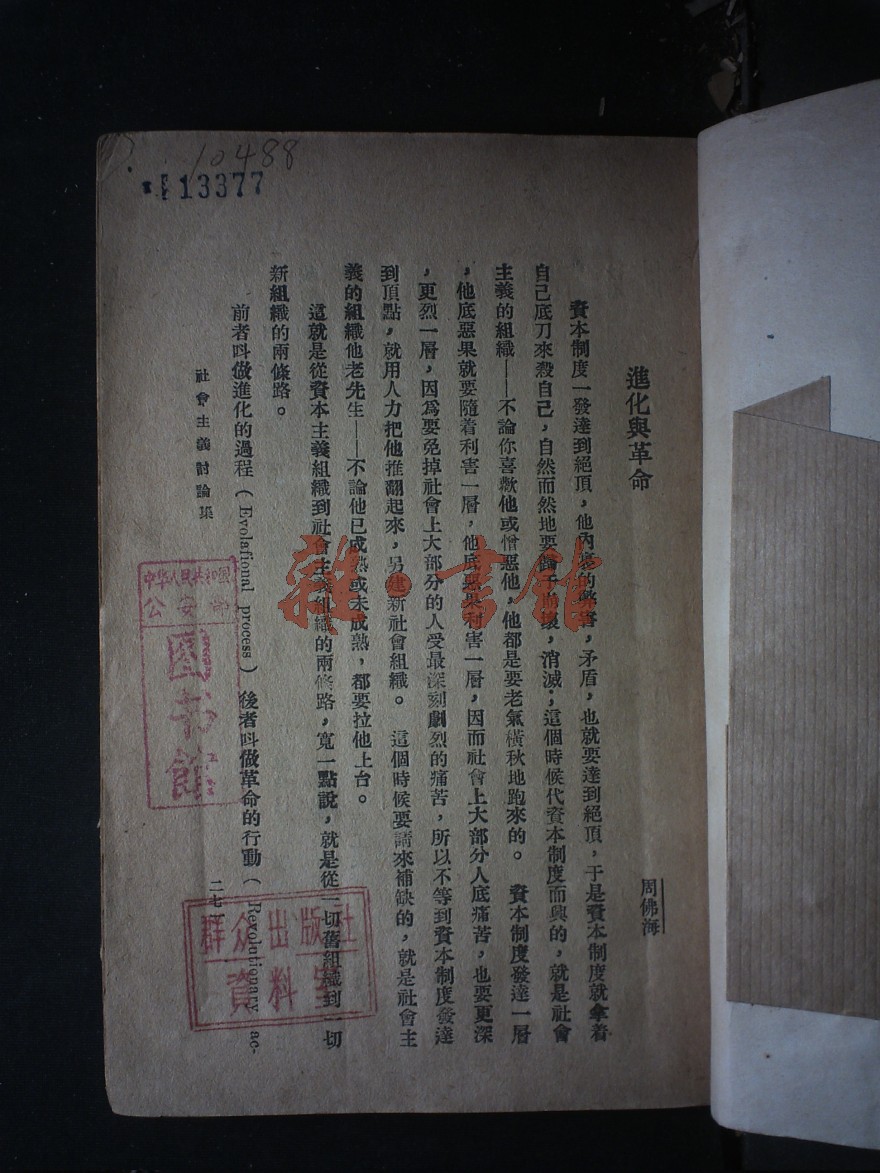 10488
13377
進化與革命
周佛海
資本制度一發達到絕頂，他內裏的弊害，矛盾，也就要達到絕頂，于是資本制度就拿着
自己底刀來殺自己，自然而然地要崩壞，消滅；這個時候代資本制度而興的，就是社會
主義的組織——不論你喜歡他或憎惡他，他都是要老氣橫秋地跑來的。 資本制度發達一層
，他底惡果就要隨着利害一層，他底惡果利害一層，因而社會上大部分人底痛苦，也要更深
，更烈一層，因爲要免掉社會上大部分的人受最深刻劇烈的痛苦，所以不等到資本制度發達
到頂點，就用人力把他推翻起來，另建新社會組織。 這個時候要請來補缺的，就是社會主
義的組織他老先生——不論他已成熟或未成熟，都要拉他上台。
這就是從資本主義組織到社會主義組織的兩條路，寬一點說，就是從一切舊組織到一切
新組織的兩條路。
前者呌做進化的過程（Evolafional process）後者呌做革命的行動（Revolutionary ac-
社會主義討論集
二七一
中华人民共和国
公安部
图书馆
群众出版社
資料室
雜·書館